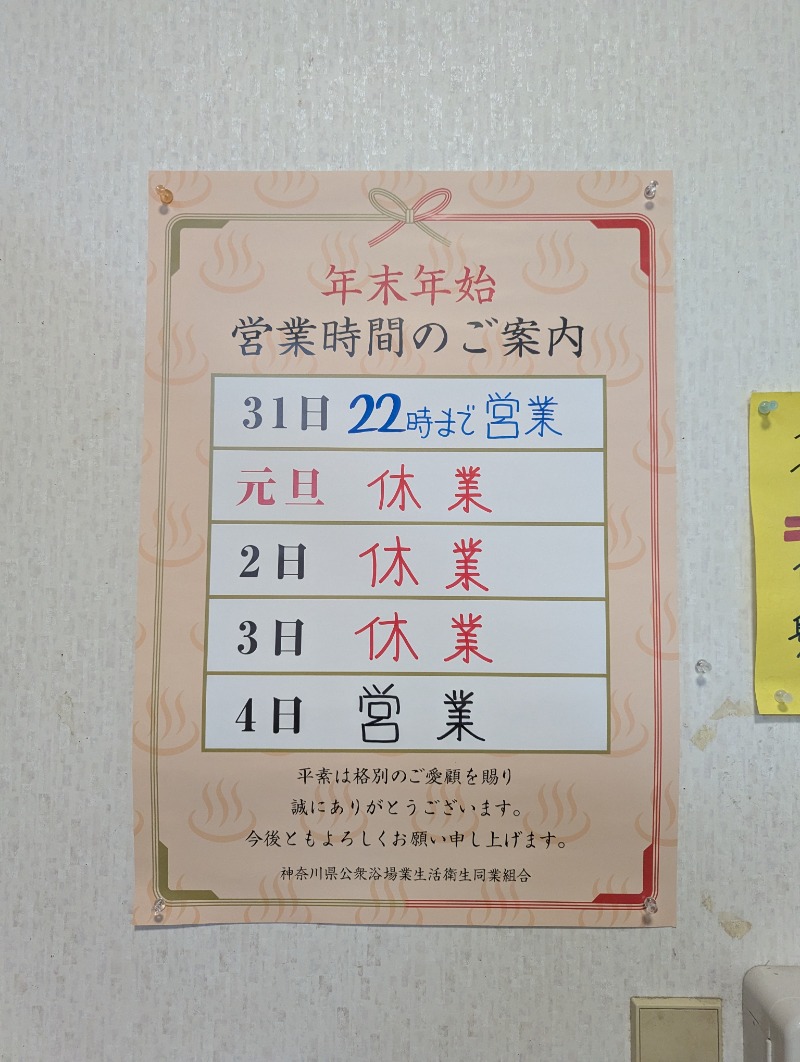 年末年始
営業時間のご案内
31日 22時まで営業
元旦 休業
2日 休業
3日 休業
4日 営業
平素は格別のご愛顧を賜り
誠にありがとうございます。
今後ともよろしくお願い申し上げます。
神奈川県公衆浴場業生活衛生同業組合